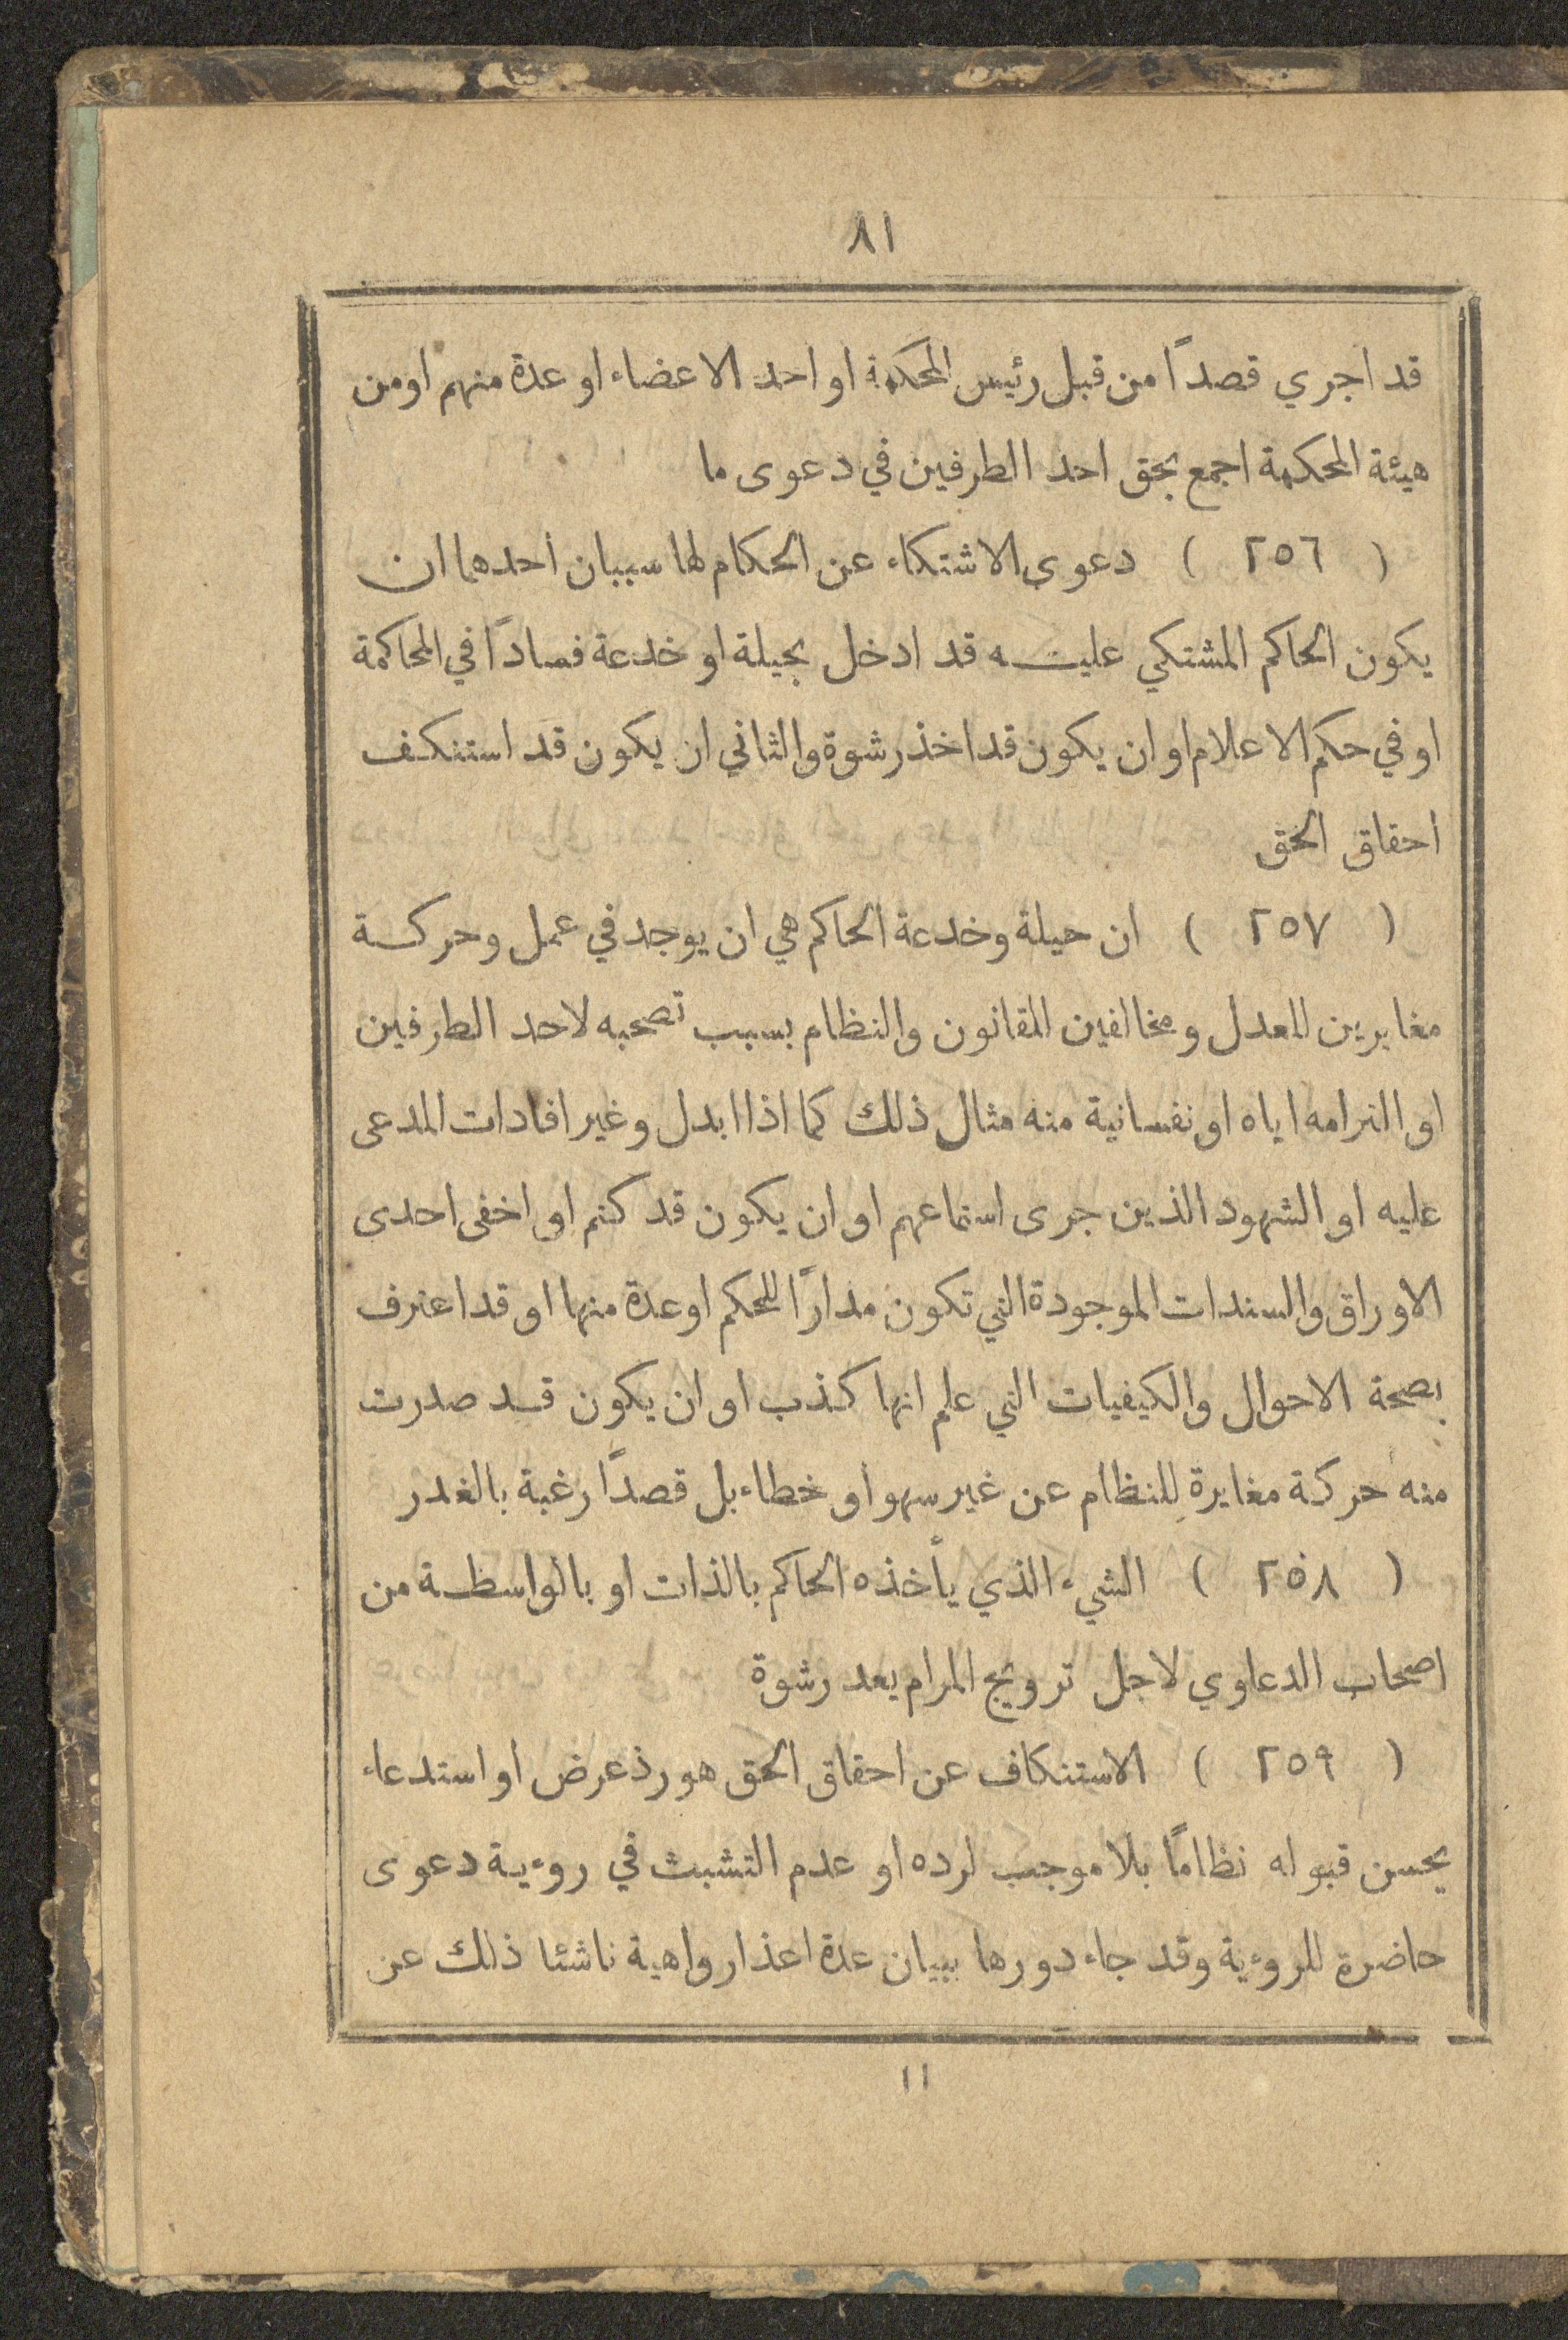 ٨١
قد اجري قصداً من قبل رئيس المحكمة او احد الاعضاء او عدة منهم او من
هيئة المحكمة اجمع بحق احد الطرفين في دعوى ما
( ٢٥٦ ) دعوى الاشتكاء عن الحكام لها سببان احدهما ان
يكون الحاكم المشتكي عليه قد ادخل بحيلة او خدعة فساداً في المحاكمة
او في حكم الاعلام او ان يكون قد اخذ رشوة والثاني ان يكون قد استنكف
احقاق الحق
( ٢٥٧ ) ان حيلة وخدعة الحاكم هي ان يوجد في عمل وحركة
مغايرين للعدل ومخالفين للقانون والنظام بسبب تصحبه لاحد الطرفين
او التزامه اياه او نفسانية منه مثال ذلك كما اذا ابدل وغير افادات المدعى
عليه او الشهود الذين جرى استماعهم او ان يكون قد كتم او اخفى احدى
الاوراق والسندات الموجودة التي تكون مداراً للحكم او عدة منها او قد اعترف
بصحة الاحوال والكيفيات التي علم انها كذب او ان يكون قد صدرت
منه حركة مغايرة للنظام عن غير سهو او خطاء بل قصداً رغبة بالغدر
( ٢٥٨ ) الشيء الذي يأخذه الحاكم بالذات او بالواسطة من
اصحاب الدعاوي لاجل ترويج المرام يعد رشوة
( ٢٥٩ ) الاستنكاف عن احقاق الحق هو رذ عرض او استدعاء
يحسن قبوله نظاماً بلا موجب لرده او عدم التشبث في روءية دعوى
حاضرة للروءية وقد جاء دورها ببيان عدة اعذار واهية ناشئا ذلك عن
١١